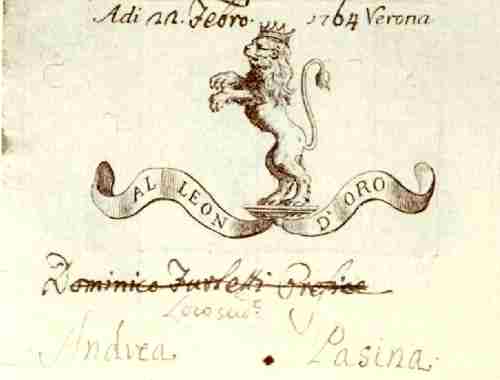 Adi 22. Febro. 1764 Verona
AL LEON D'ORO
Dominico Turletti Orefice
Andrea Pasina